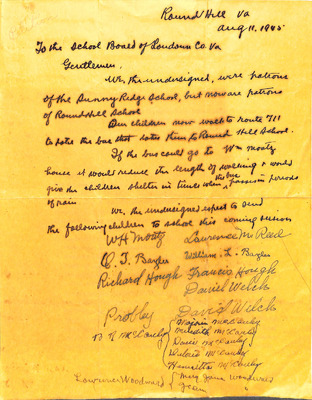 Round Hill Va
Aug 11, 1945
To the School Board of Loudoun Co. Va
Gentlemen,
We, the undersigned, were patrons
of the Sunny Ridge School, but now are patrons
of Round Hill School
Our children now walk to route 711
to take the bus that takes them to Round Hill School.
If the bus could go to Wm Moatz
house it would reduce the length of walking & would
give the children shelter in times when the bus passes in periods
of rain
We, the undersigned expect to send
the following children to school this coming session
W H Moatz Lawrence M. Reed
William L. Bazler
Richard Hough Francis Hough
Daniel Welch
Probby David Welch
Marjorie McCauley
Meredith McCauley
Doris McCauley
McCauley
Henrietta McCauley
Lawrence Woodward Mary Jane Woodward
Jean